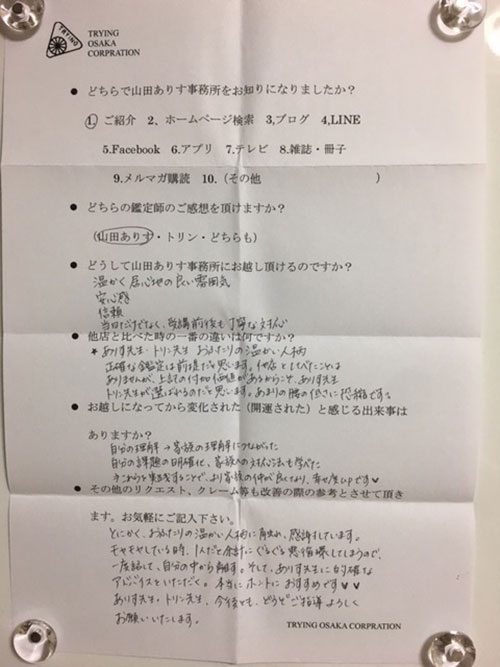 TRYING
TRYING
OSAKA
CORPRATION
● どちらで山田ありす事務所をお知りになりましたか？
1, ご紹介 2、ホームページ検索 3,ブログ 4,LINE
5.Facebook 6.アプリ 7.テレビ 8.雑誌・冊子
9.メルマガ購読 10.（その他 ）
● どちらの鑑定師のご感想を頂けますか？
（山田ありす・トリン・どちらも）
● どうして山田ありす事務所にお越し頂けるのですか？
温かく居心地の良い雰囲気
安心感
信頼
当日だけでなく、受講前後も丁寧な対応
● 他店と比べた時の一番の違いは何ですか？
★ありす先生・トリン先生 おふたりの温かい人柄
正確な鑑定は前提だと思います。他店と比べたことは
ありませんが、上記の付加価値があるからこそ、ありす先生
トリン先生が選ばれるのだと思います。あまりの腰の低さに恐縮です。
● お越しになってから変化された（開運された）と感じる出来事は
ありますか？
自分の理解→家族の理解につながった
自分の課題の明確化、家族への対応法も学べた
そこからを実践することで、より家族の仲が良くなり、幸せ度UPです♥
● その他のリクエスト、クレーム等も改善の際の参考とさせて頂き
ます。お気軽にご記入下さい。
とにかく、おふたりの温かい人柄に触れ、感謝しています。
モヤモヤしている時、1人だと余計にぐるぐる悪循環してしまうので、
一度話して、自分の中から離す。そして、ありす先生に的確な
アドバイスをいただく。本当にホントにおすすめです♥♥
ありす先生・トリン先生、今後とも、どうぞご指導よろしく
お願いいたします。
TRYING OSAKA CORPRATION